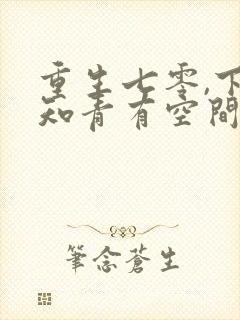 重生七零,下
知青有空間
筆念蒼生